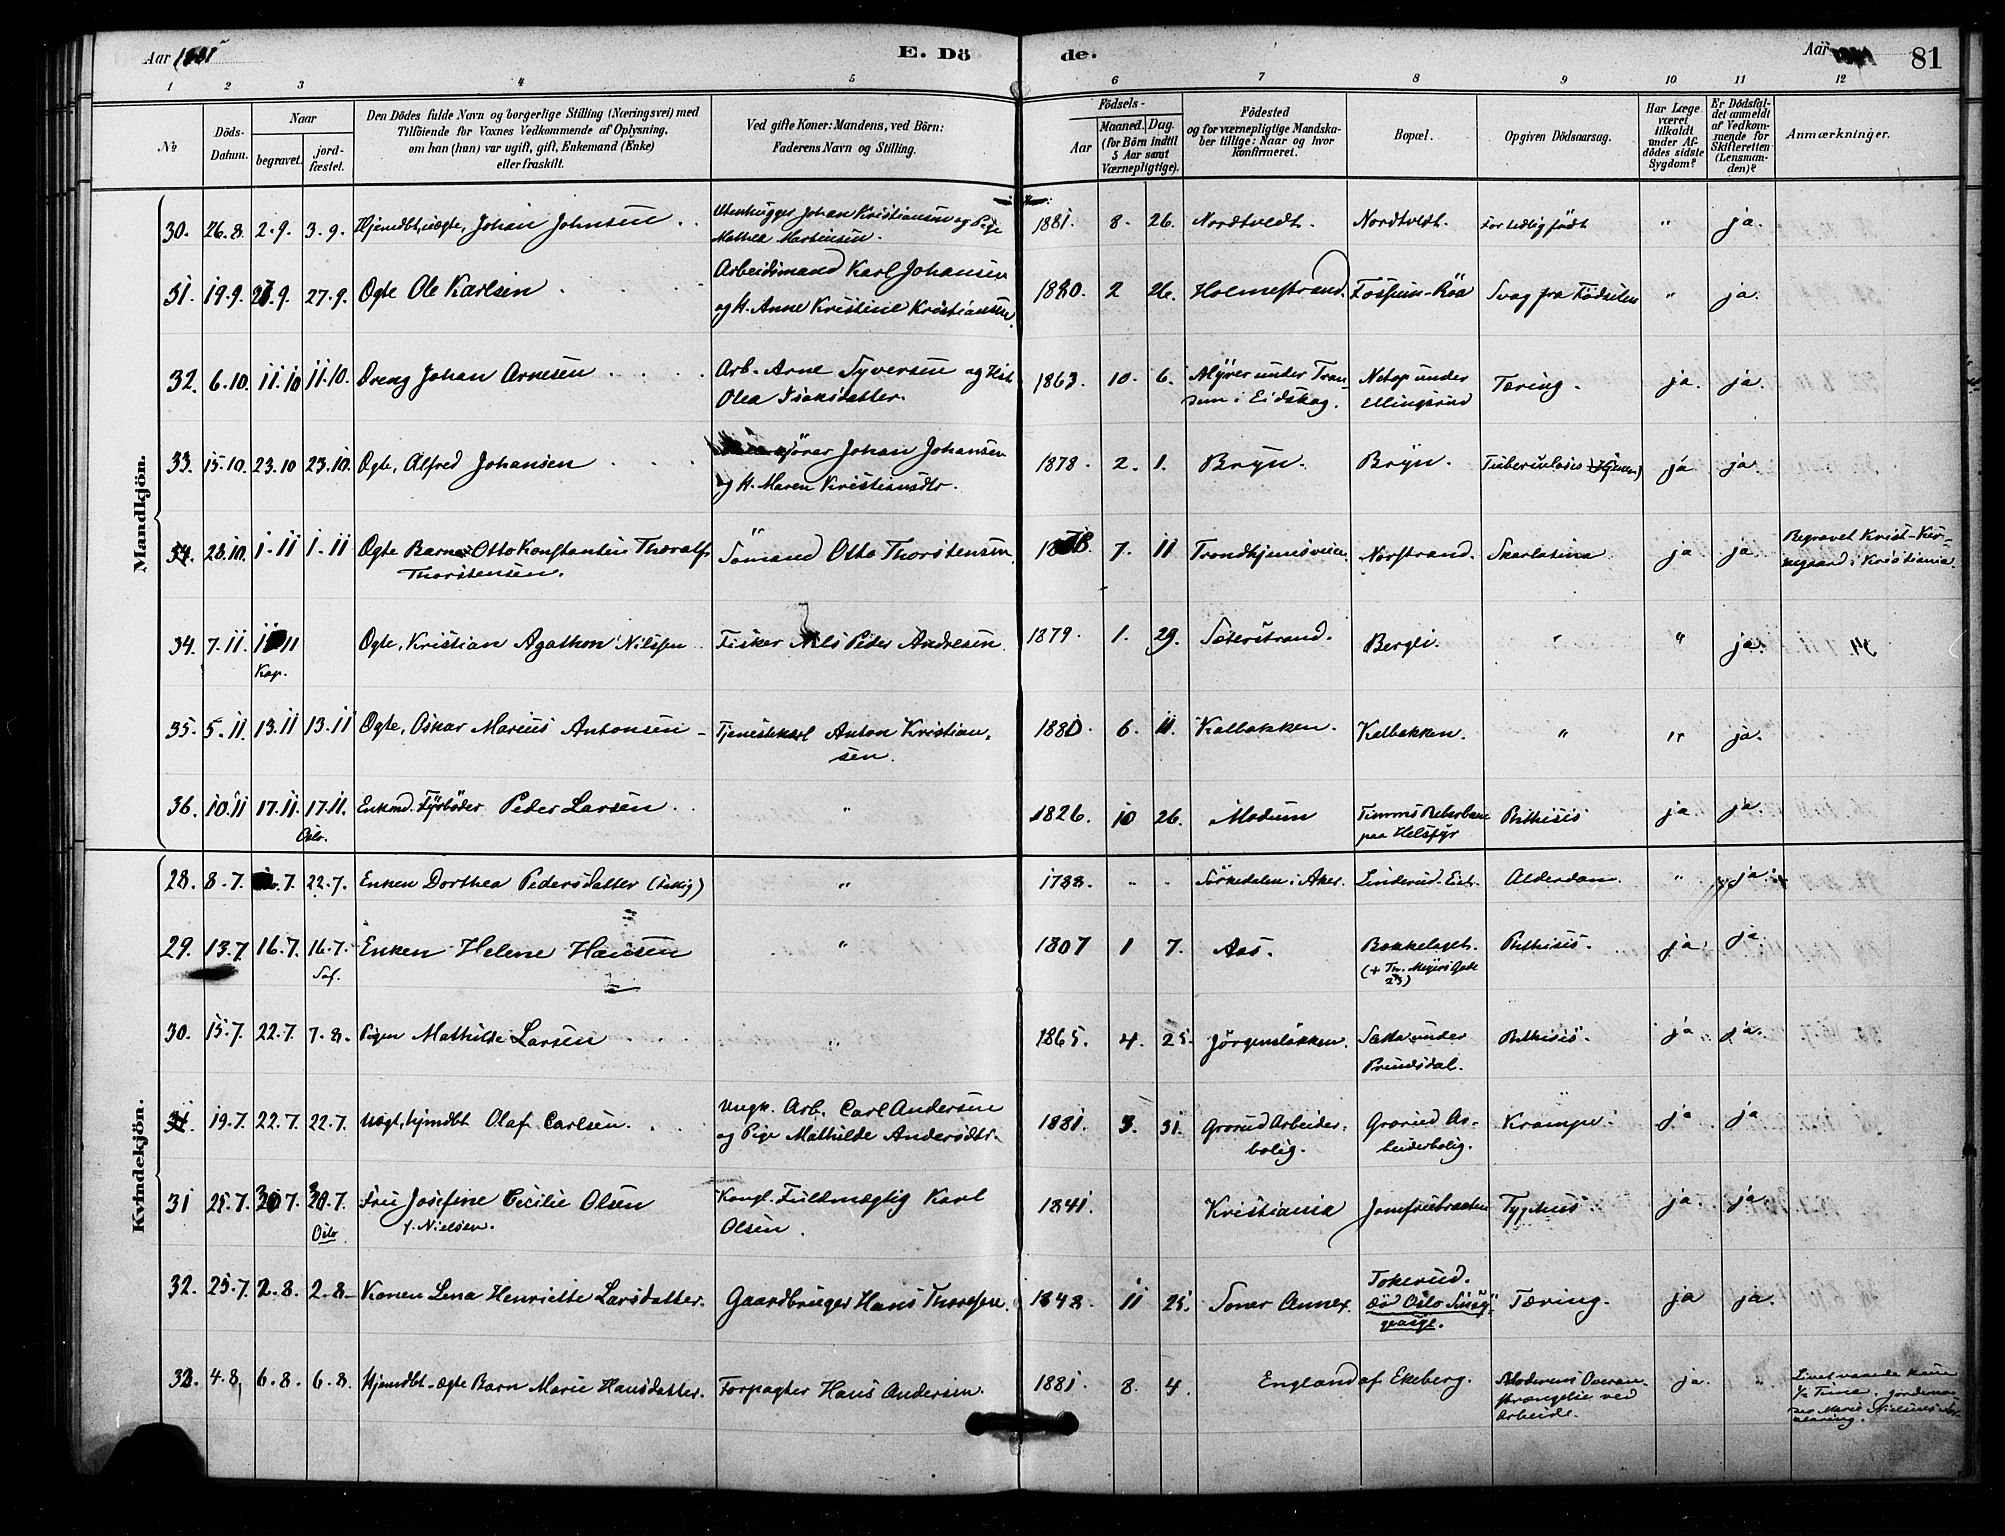 Aar 1881
E. Dö
de.
Aar
81
1 2 3 4 5 6 7 8 9 10 11 12
No
Döds-
Datum.
Naar
begravet.
jord-
fæstet.
Den Dödes fulde Navn og borgerlige Stilling (Næringsvei) med
Tilföiende for Voxnes Vedkommende af Oplysning,
om han (hun) var ugift, gift, Enkemand (Enke)
eller fraskilt.
Ved gifte Koner: Mandens, ved Börn:
Faderens Navn og Stilling.
Födsels-
Aar
Maaned. Dag.
(for Börn indtil
5 Aar samt
Værnepligtige).
Födested
og for værnepligtige Mandska-
ber tillige: Naar og hvor
konfirmeret.
Bopæl.
Opgiven Dödsaarsag.
Har Læge
været
tilkaldt
under Af-
dödes sidste
Sygdom?
Er Dödsfal-
det anmeldt
af Vedkom-
mende for
Skifteretten
(Lensman-
den)?
Anmærkninger.
Mandkjön.
30. 26.8. 2.9. 3.9. Hjemdbt, uægte, Johan Johnsen Johan Kristiansen og Pige
Mathea Martinsen. 1881. 8. 26. Nordtvedt. Nordtvedt. For tidlig födt " ja.
31. 19.9. 27.9. 27.9. Ægte Ole Karlsen Arbeidsmand Karl Johansen
og H. Anne Kristine Kristiansen. 1880. 2 26. Holmestrand. Fossum-Röa Svag fra Födselen " ja.
32. 6.10. 11.10 11.10. Dreng Johan Arnesen Arb. Arne Syversen og Hst.
Olea Isaksdatter. 1863. 10. 6. Myrer under Tran-
sum i Eidskog. Netop under
Ellingsrud Tæring. ja. ja.
33. 15.10. 23.10 23.10. Ægte, Alfred Johansen kjörer Johan Johansen
og H. Maren Kristiansdtr. 1878. 2. 1. Bryn. Bryn. Tuberculosis (Hjernen) ja ja.
34. 28.10. 1-11 1-11 Ægte Barn Otto Konstantin Thoralf
Thorstensen. Sömand Otto Thorstensen. 1878 7. 11 Trondhjemsveien Norstrand. Skarlatina ja ja. Begravet Krist-Kir-
kegaard i Kristiania.
34. 7.11. 11
Kap. Ægte, Kristian Agathon Nilssen Fisker Nils Peder Andresen 1879. 1. 29. Sæterstrand. Bergli. " " ja.
35. 5.11. 13.11 13.11 Ægte, Oskar Marius Antonsen Tjenestekarl Anton Kristian-
sen. 1880. 6. 11. Kalbakken. Kalbakken. " " ja.
36. 10.11 17.11. 17.11.
Oslo. Enkmd. Fyrböder Peder Larsen " 1826. 10 26. Modum Timms Reberbane
paa Helsfyr Phthisis ja ja.
Kvindekjön.
28. 8.7. 7. 22.7. Enken Dorthea Pedersdatter (Fattig) " 1788. " " Sörkedalen i Aker. Linderud-Eie. Alderdom. " ja.
29. 13.7 16.7. 16.7.
Enken Helene Hansen " 1807 1 7. Aas. Bækkelaget.
(+ Th. Meyers Gade
23) Phthisis. ja. ja.
30. 15.7. 22.7. 7.8. Pigen Mathilde Larsen " 1865. 4. 25. Jörgensløkken. Sæter under
Prindsdal. Phthisis. ja ja.
31. 19.7. 22.7. 22.7. uægt, hjmdbt Olaf Carlsen. Ungk. Arb. Carl Andersen
og Pige Mathilde Andersdtr. 1881. 3. 31. Grorud Arbeider-
bolig. Grorud Ar-
beiderbolig. Krampe ja ja
31 25.7. 30.7. 30.7.
Oslo. Fru Josefine Cecilie Olsen
f. Nielsen. Kongl. Fuldmægtig Karl
Olsen. 1841. Kristiania Jomfrubraaten Typhus ja ja.
32. 25.7. 2.8. 2.8. Konen Lena Henriette Larsdatter. Gaardbruger Hans Thoresen. 1848. 11 25. Soner Annex. Tokerud.
död Oslo Sindssy-
geasyl. Tæring. ja ja.
33. 4.8. 6.8. 6.8. Hjemdbt. ægte Barn Marie Hansdatter. Forpagter Hans Andersen. 1881. 8. 4. England af Ekeberg. Moderens Overan-
strængelse ved
Arbeide. ja. " Livet varede kun
½ Time. Jordemo-
der Marie Nielsens Er-
klæring.